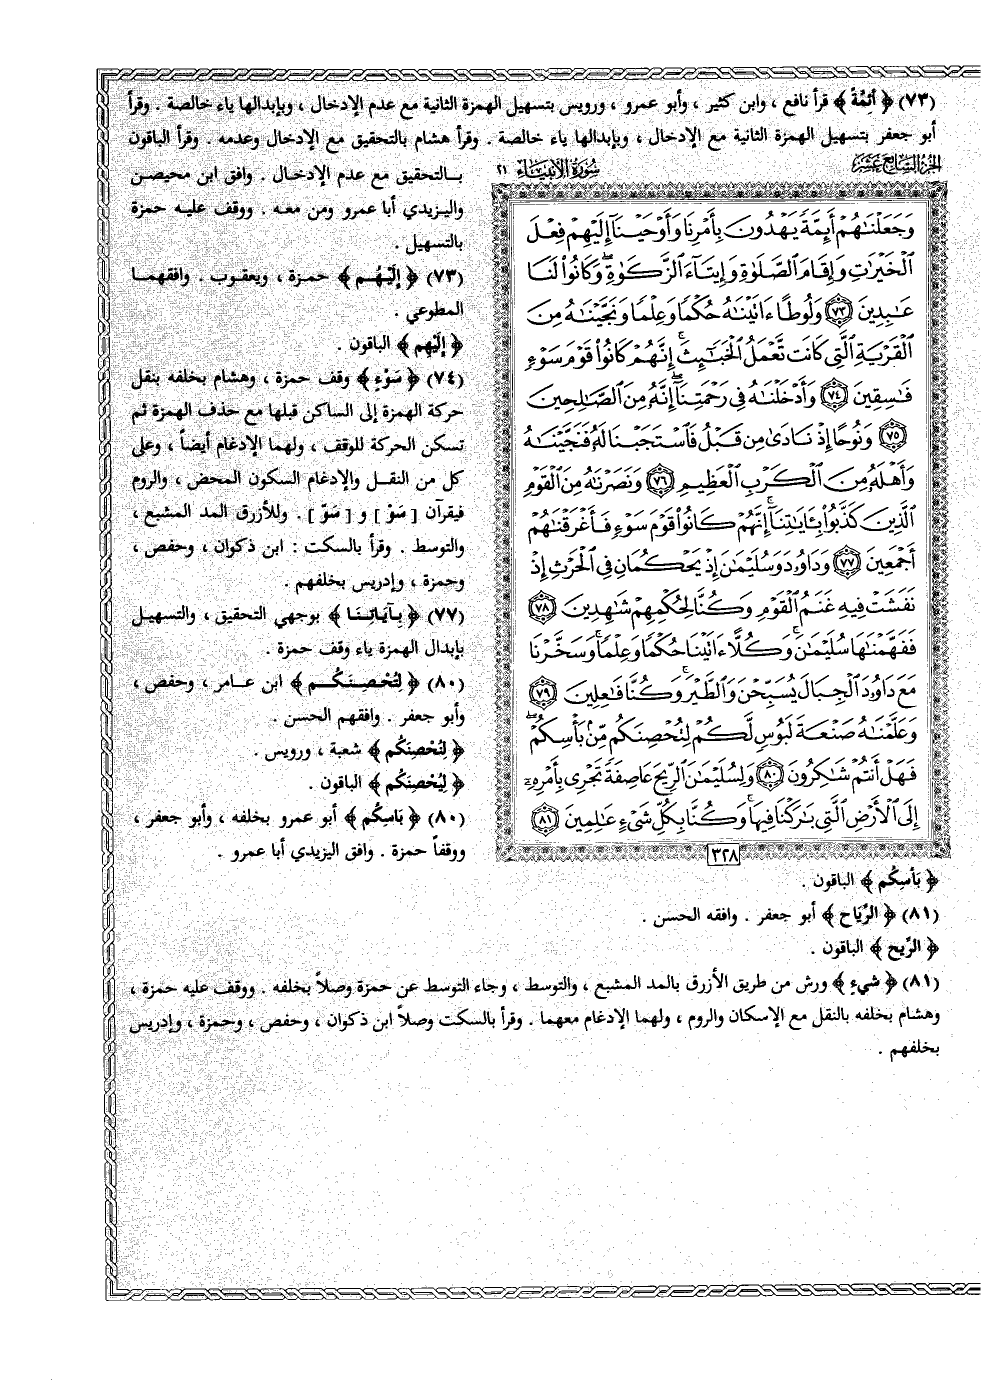 (٧٣) ﴿ أَئِمَّةً ﴾ قرأ نافع ، وابن كثير ، وأبو عمرو ، ورويس بتسهيل الهمزة الثانية مع عدم الإدخال ، وبإبدالها ياء خالصة . وقرأ
أبو جعفر بتسهيل الهمزة الثانية مع الإدخال ، وبإبدالها ياء خالصة . وقرأ هشام بالتحقيق مع الإدخال وعدمه . وقرأ الباقون
بـالتحقيق مع عدم الإدخـال . وافق ابن محيصـن
واليـزيدي أبا عمرو ومن معـه . ووقف عليـه حمزة
بالتسهيل .
(٧٣) ﴿ إِلَيْهُـم ﴾ حمـزة ، ويعقـوب . وافقهمـا
المطوعي .
﴿ إِلَيْهِم ﴾ الباقون .
(٧٤) ﴿ سَوْءٍ ﴾ وقف حمزة ، وهشام بخلفه بنقل
حركة الهمزة إلى الساكن قبلها مع حذف الهمزة ثم
تسكن الحركة للوقف ، ولهما الإدغام أيضاً ، وعلى
كل من النقـل والإدغام السكون المحض ، والروم
فيقرآن [ سَوْ ] و [ سَوّ ] . وللأزرق المد المشبع ،
والتوسط . وقرأ بالسكت : ابن ذكوان ، وحفص ،
وحمزة ، وإدريس بخلفهم .
(٧٧) ﴿ بِـآيَـاتِـنَـا ﴾ بوجهي التحقيق ، والتسهيـل
بإبدال الهمزة ياء وقف حمزة .
(٨٠) ﴿ لِتُحْصِـنَـكُـم ﴾ ابن عـامر ، وحفص ،
وأبو جعفر . وافقهم الحسن .
﴿ لِنُحْصِنَكُم ﴾ شعبة ، ورويس .
﴿ لِيُحْصِنَكُم ﴾ الباقون .
(٨٠) ﴿ بَاسِكُم ﴾ أبو عمرو بخلفه ، وأبو جعفر ،
ووقفاً حمزة . وافق اليزيدي أبا عمرو .
الجزء السابع عشر
سورة الأنبياء ٢١
وَجَعَلْنَٰهُمْ أَئِمَّةً يَهْدُونَ بِأَمْرِنَا وَأَوْحَيْنَآ إِلَيْهِمْ فِعْلَ
ٱلْخَيْرَٰتِ وَإِقَامَ ٱلصَّلَوٰةِ وَإِيتَآءَ ٱلزَّكَوٰةِ ۖ وَكَانُوا۟ لَنَا
عَٰبِدِينَ ٧٣ وَلُوطًا ءَاتَيْنَٰهُ حُكْمًا وَعِلْمًا وَنَجَّيْنَٰهُ مِنَ
ٱلْقَرْيَةِ ٱلَّتِى كَانَت تَّعْمَلُ ٱلْخَبَٰٓئِثَ ۗ إِنَّهُمْ كَانُوا۟ قَوْمَ سَوْءٍ
فَٰسِقِينَ ٧٤ وَأَدْخَلْنَٰهُ فِى رَحْمَتِنَآ ۖ إِنَّهُۥ مِنَ ٱلصَّٰلِحِينَ
٧٥ وَنُوحًا إِذْ نَادَىٰ مِن قَبْلُ فَٱسْتَجَبْنَا لَهُۥ فَنَجَّيْنَٰهُ
وَأَهْلَهُۥ مِنَ ٱلْكَرْبِ ٱلْعَظِيمِ ٧٦ وَنَصَرْنَٰهُ مِنَ ٱلْقَوْمِ
ٱلَّذِينَ كَذَّبُوا۟ بِـَٔايَٰتِنَآ ۚ إِنَّهُمْ كَانُوا۟ قَوْمَ سَوْءٍ فَأَغْرَقْنَٰهُمْ
أَجْمَعِينَ ٧٧ وَدَاوُۥدَ وَسُلَيْمَٰنَ إِذْ يَحْكُمَانِ فِى ٱلْحَرْثِ إِذْ
نَفَشَتْ فِيهِ غَنَمُ ٱلْقَوْمِ وَكُنَّا لِحُكْمِهِمْ شَٰهِدِينَ ٧٨
فَفَهَّمْنَٰهَا سُلَيْمَٰنَ ۚ وَكُلًّا ءَاتَيْنَا حُكْمًا وَعِلْمًا ۚ وَسَخَّرْنَا
مَعَ دَاوُۥدَ ٱلْجِبَالَ يُسَبِّحْنَ وَٱلطَّيْرَ ۚ وَكُنَّا فَٰعِلِينَ ٧٩
وَعَلَّمْنَٰهُ صَنْعَةَ لَبُوسٍ لَّكُمْ لِتُحْصِنَكُم مِّنۢ بَأْسِكُمْ ۖ
فَهَلْ أَنتُمْ شَٰكِرُونَ ٨٠ وَلِسُلَيْمَٰنَ ٱلرِّيحَ عَاصِفَةً تَجْرِى بِأَمْرِهِۦٓ
إِلَى ٱلْأَرْضِ ٱلَّتِى بَٰرَكْنَا فِيهَا ۚ وَكُنَّا بِكُلِّ شَىْءٍ عَٰلِمِينَ ٨١
٣٢٨
﴿ بَأْسِكُم ﴾ الباقون .
(٨١) ﴿ الرِّيَاحَ ﴾ أبو جعفر . وافقه الحسن .
﴿ الرِّيحَ ﴾ الباقون .
(٨١) ﴿ شَيْءٍ ﴾ ورش من طريق الأزرق بالمد المشبع ، والتوسط ، وجاء التوسط عن حمزة وصلاً بخلفه . ووقف عليه حمزة ،
وهشام بخلفه بالنقل مع الإسكان والروم ، ولهما الإدغام معهما . وقرأ بالسكت وصلاً ابن ذكوان ، وحفص ، وحمزة ، وإدريس
بخلفهم .